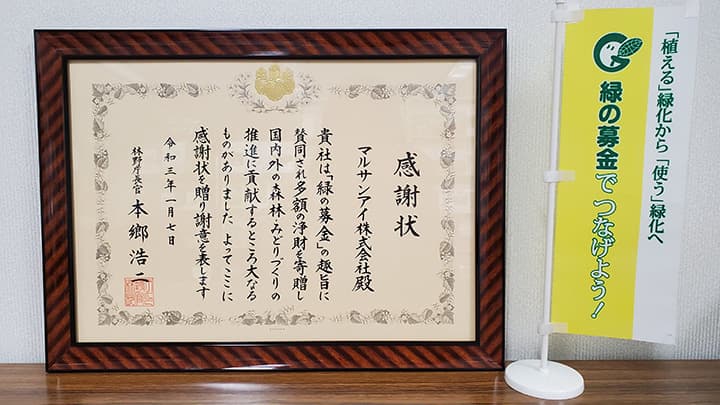 感謝状
マルサンアイ株式会社殿
貴社は「緑の募金」の趣旨に
賛同され多額の浄財を寄贈し
国内外の森林・みどりづくりの
推進に貢献するところ大なる
ものがありました よってここに
感謝状を贈り謝意を表します
令和三年一月七日
林野庁長官 本郷浩二
「植える」緑化から「使う」緑化へ
緑の募金でつなげよう!